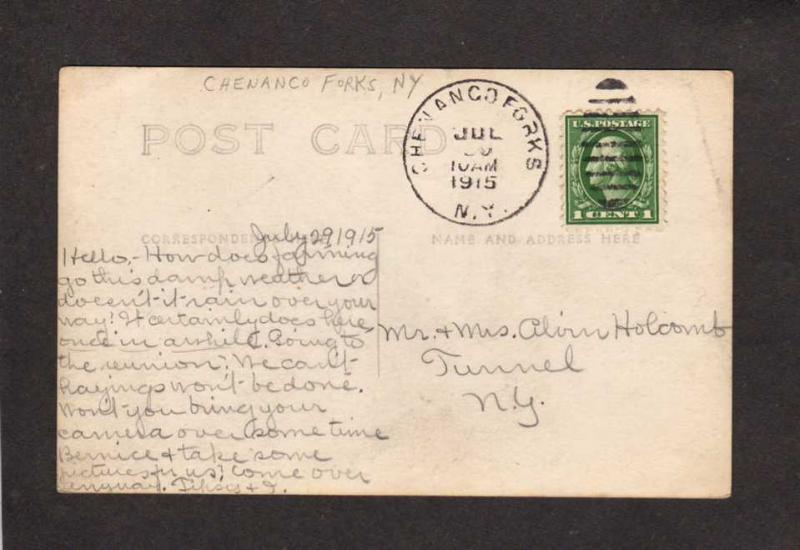 CHENANCO FORKS, NY
POST CARD
CHENANGO FORKS
JUL
30
10AM
1915
N.Y.
U.S. POSTAGE
1 CENT 1
CORRESPONDENCE
NAME AND ADDRESS HERE
July 29 1915
Hello,- How does farming
go this damp weather or
doesn't it rain over your
way? It certainly does here
once in awhile. Going to
the reunion? We can't
hayings won't be done.
Won't you bring your
camera over some time
Bernice & take some
pictures for us? Come over
anyway.
Mr. & Mrs. Alvin Holcomb
Tunnel
N.Y.